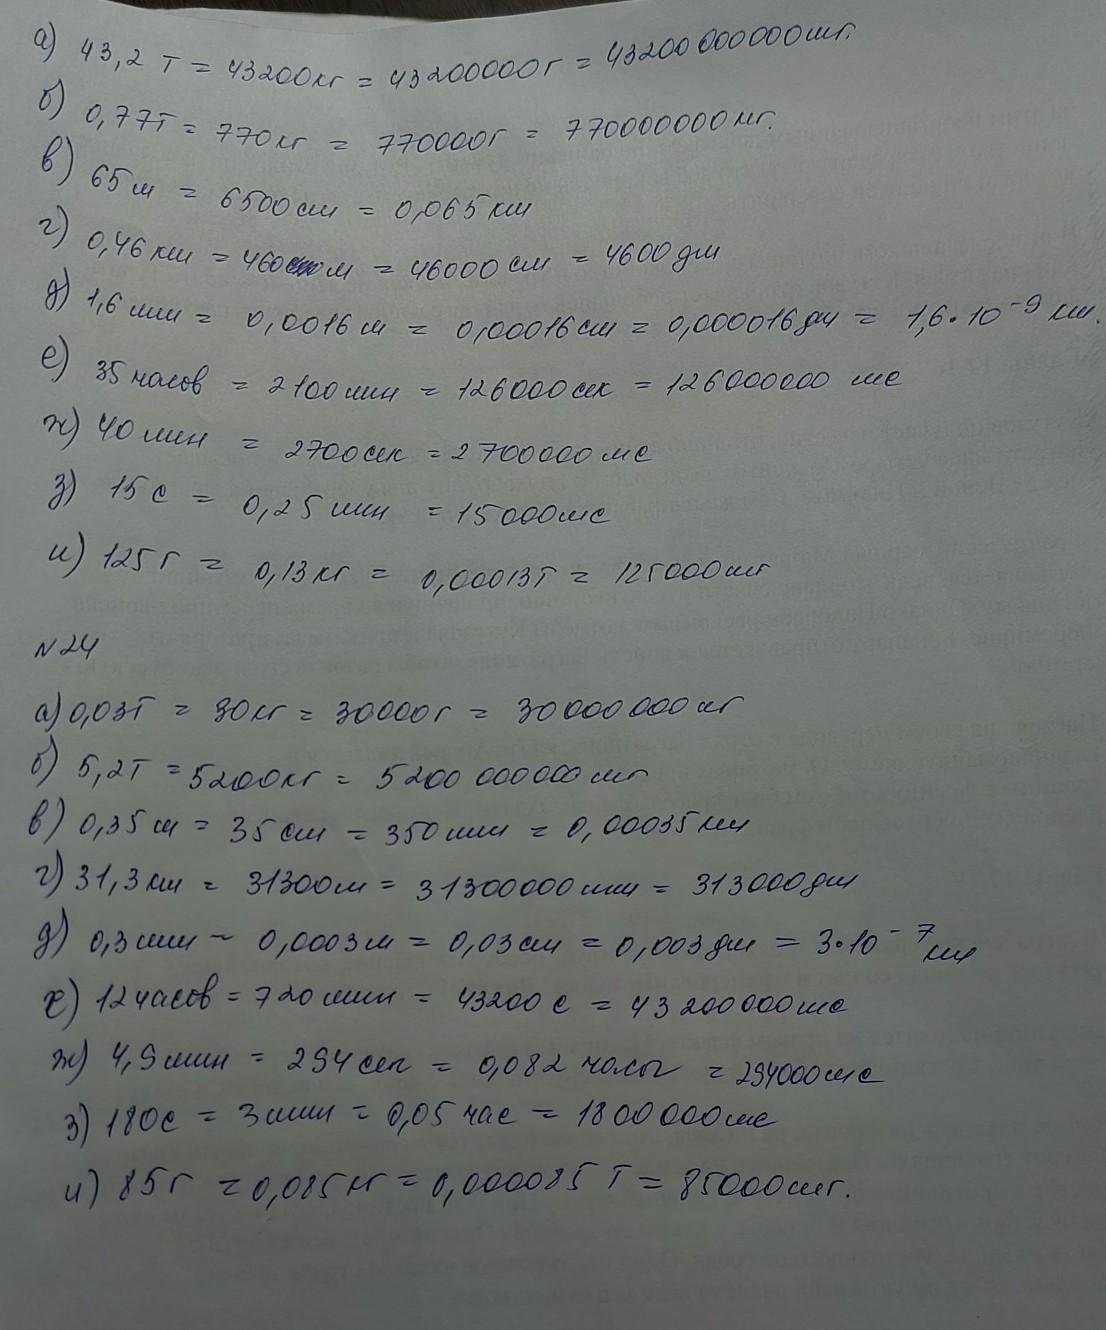 а) 43,2 т = 43200кг = 43200000г = 43200000000мг.
б) 0,77т = 770кг = 770000г = 770000000мг.
в) 65м = 6500см = 0,065км
г) 0,46км = 460м = 46000см = 4600дм
д) 1,6мм = 0,0016м = 0,00016см = 0,000016дм = 1,6·10⁻⁹км.
е) 35часов = 2100мин = 126000сек = 126000000 мс
ж) 40мин = 2700сек = 2700000мс
з) 15с = 0,25мин = 15000мс
и) 125г = 0,13кг = 0,00013т = 125000мг
N24
а) 0,03т = 30кг = 30000г = 30000000мг
б) 5,2т = 5200кг = 5200000000мг
в) 0,35м = 35см = 350мм = 0,00035км
г) 31,3км = 31300м = 31300000мм = 313000дм
д) 0,3мм - 0,0003м = 0,03см = 0,003дм = 3·10⁻⁷км
е) 12часов = 720мин = 43200с = 43200000мс
ж) 4,9мин = 294сек = 0,082 часы = 294000мс
з) 180с = 3мин = 0,05час = 1800000мс
и) 85г = 0,085кг = 0,000085т = 85000мг.